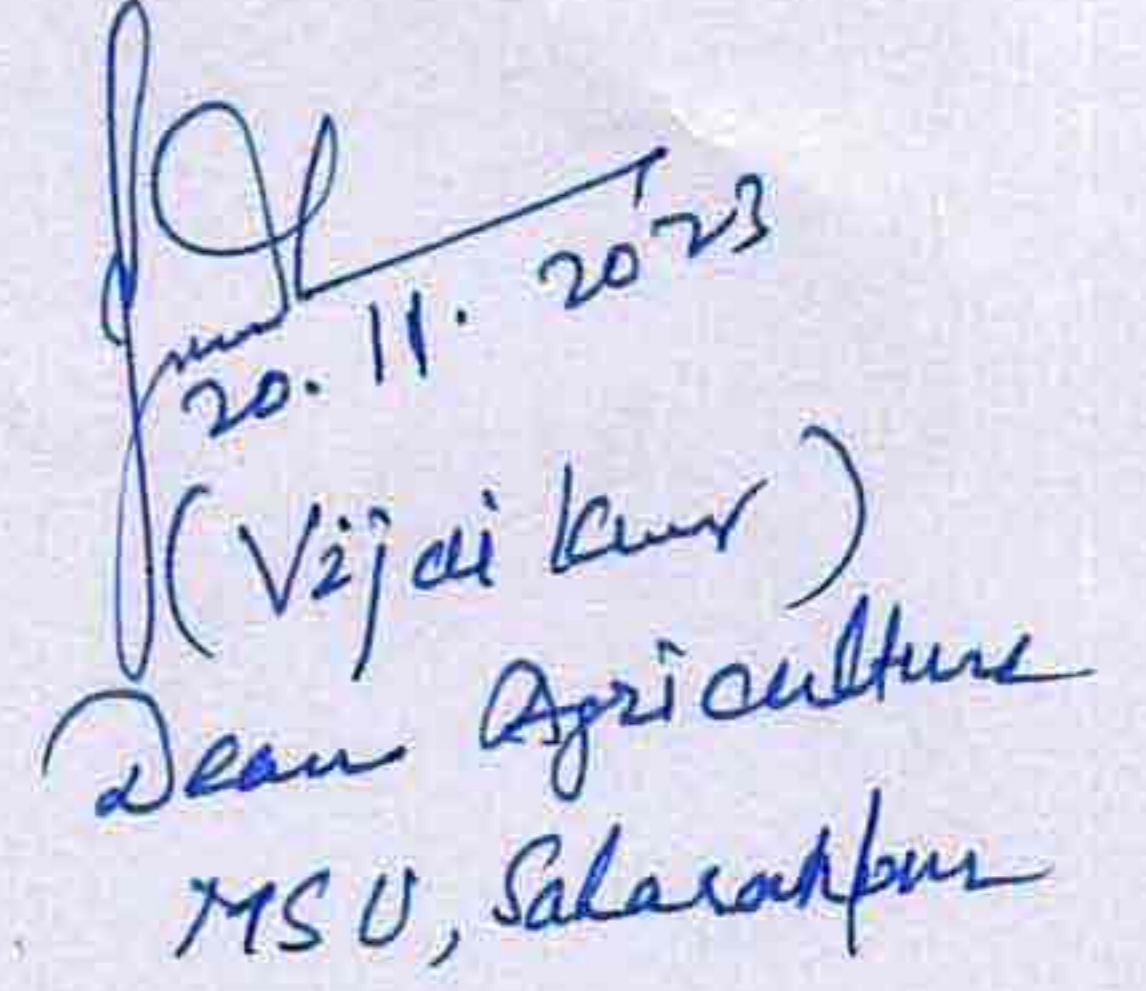 20.11.2023
(Vijai Kumar)
Dean Agriculture
MSU, Saharanpur